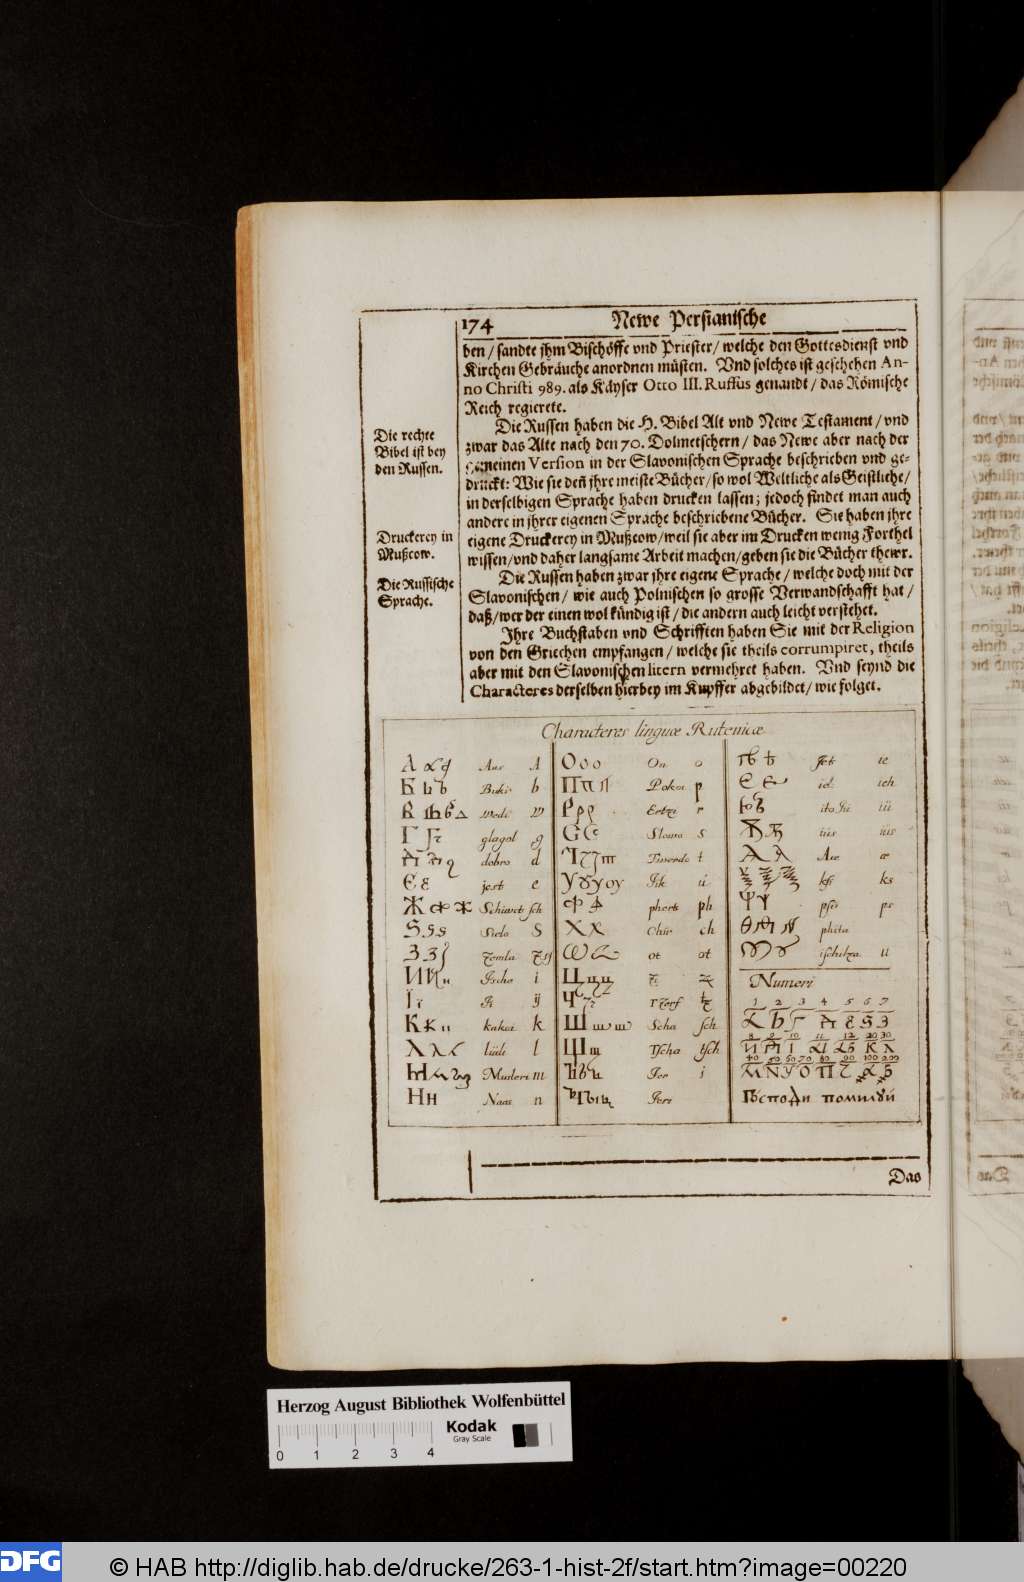 174 Newe Persianische
ben / sandte jhm Bischöffe vnd Priester / welche den Gottesdienst vnd
Kirchen Gebräuche anordnen müsten. Vnd solches ist geschehen An-
no Christi 989. als Käyser Otto III. Ruffus genandt / das Römische
Reich regierete.
Die Russen haben die H. Bibel Alt vnd Newe Testament / vnd
zwar das Alte nach den 70. Dolmetschern / das Newe aber nach der
gemeinen Version in der Slavonischen Sprache beschrieben vnd ge-
druckt: Wie sie deñ jhre meiste Bücher / so wol Weltliche als Geistliche /
in derselbigen Sprache haben drucken lassen; jedoch findet man auch
andere in jhrer eigenen Sprache beschriebene Bücher. Sie haben jhre
eigene Druckerey in Mußcow / weil sie aber im Drucken wenig Forthel
wissen / vnd daher langsame Arbeit machen / geben sie die Bücher thewr.
Die Russen haben zwar jhre eigene Sprache / welche doch mit der
Slavonischen / wie auch Polnischen so grosse Verwandschafft hat /
daß / wer der einen wol kündig ist / die andern auch leicht verstehet.
Jhre Buchstaben vnd Schrifften haben Sie mit der Religion
von den Griechen empfangen / welche sie theils corrumpiret, theils
aber mit den Slavonischen litern vermehret haben. Vnd seynd die
Characteres derselben hierbey im Kupffer abgebildet / wie folget.
Die rechte
Bibel ist bey
den Russen.
Druckerey in
Mußcow.
Die Russische
Sprache.
Characteres linguæ Rutenicæ
А Aas A
Б Buki b
В Wedi W
Г glagol g
dobro d
Є jest e
Ж Schiwet sch
Ѕ Sielo S
З Zemla
И Ische i
Ї Ji ij
К kakoi k
Л lüdi l
Musleti m
Н н Naas n
О о о On o
П п Pokoi p
Р р р Ertzi r
С Slowo s
Twerdo t
У у оу Jik ú
Ф phert ph
Х х Chir ch
ot ot
Ц ц ц
Ч Tzerf
Ш ш ш Scha sch
Щ щ Tscha tsch
Ъ Jor i
Jeri
Ѣ Jet ie
Є iel ieh
Ю
Ѫ iüs iüs
Ѧ Aæ æ
ksi ks
Ѱ psi ps
Ѳ phita
ischitza ü
Numeri
1 2 3 4 5 6 7
8 9 10 11 12 20 30
40 50 60 70 80 90 100 200
Гѡсподи помилуй
Das
Herzog August Bibliothek Wolfenbüttel
0 1 2 3 4
Kodak
Gray Scale
DFG
© HAB http://diglib.hab.de/drucke/263-1-hist-2f/start.htm?image=00220